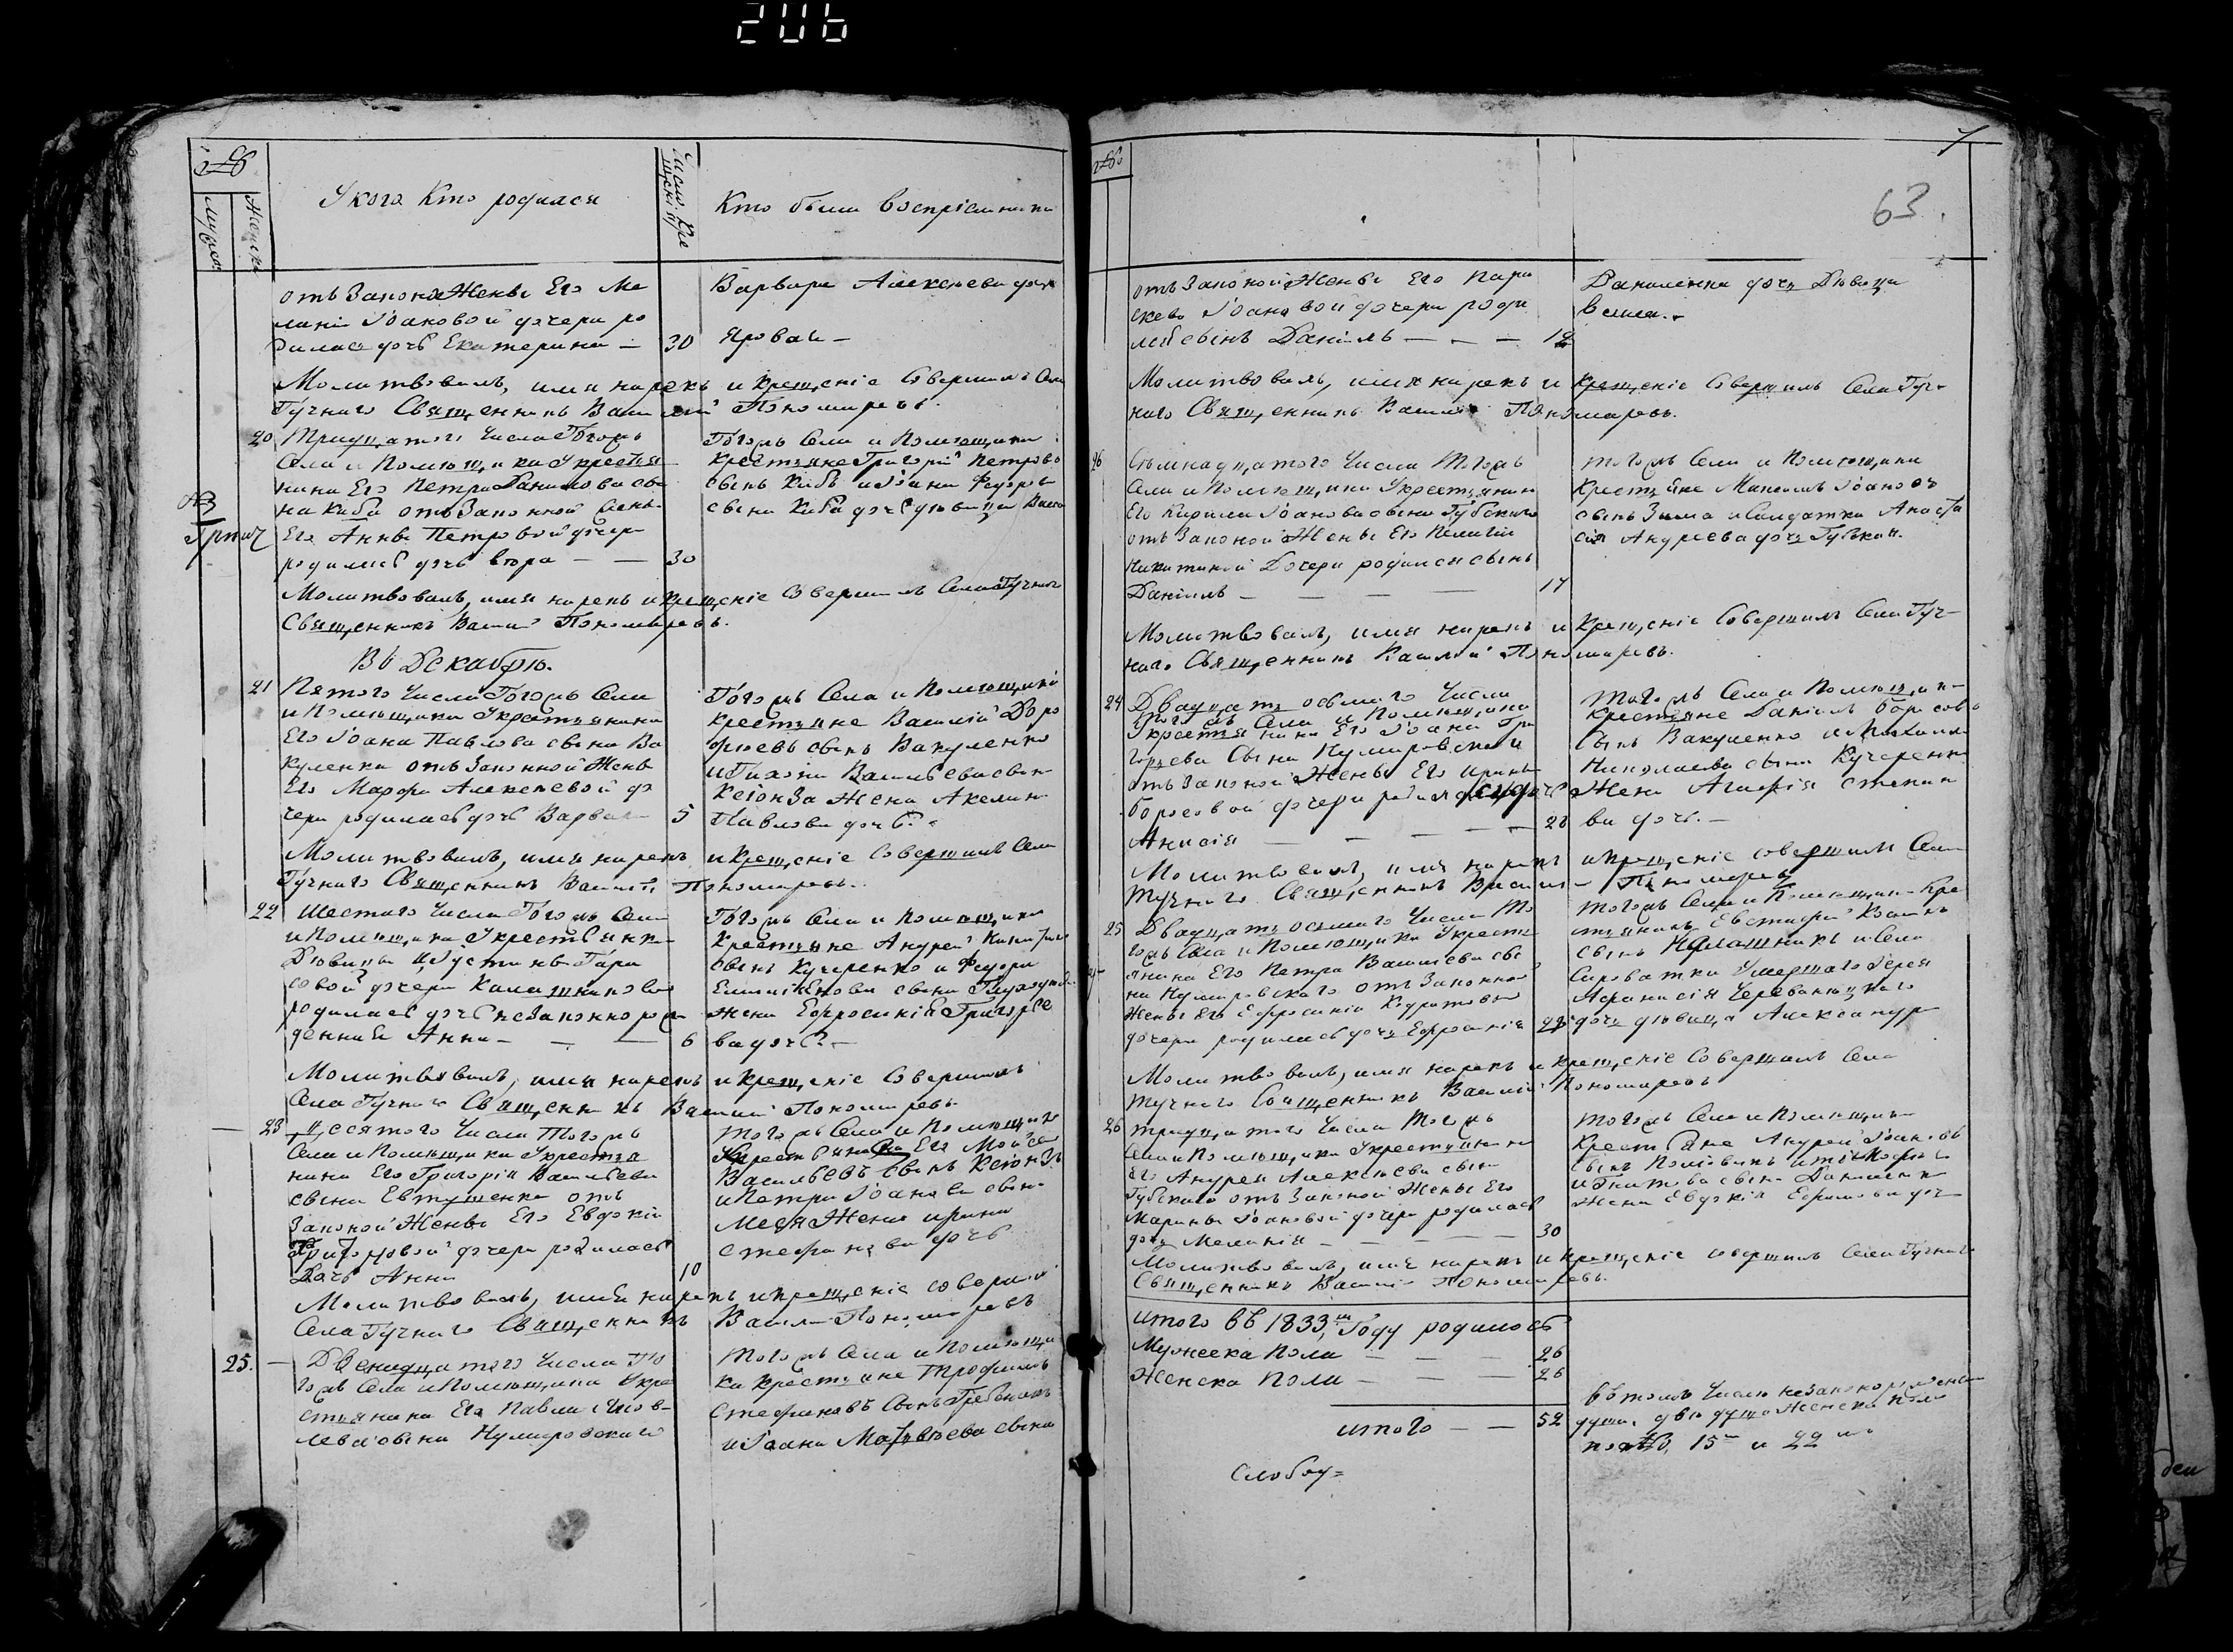 206
№
Мужеска
Женска
У кого Кто родился
Число Кре
щенія
Кто были воспріемники
отъ Законой Жены Его Ме
ланіи Іоановой дочери ро
дилась дочь Екатерина — 30
Варвара Алексѣева дочь
Яровая —
Молитвовалъ, имя нарекъ и крещеніе Совершилъ Села
Тучного Священникъ Василій Пономаревъ.
20 Тридцатого Числа Тогожъ
Села и Помѣщика У крестья
нина Его Петра Данилова сы
на Киби отъ Законной Жены
Его Анны Петровой дочери
родилась дочь — — 30
Тогожъ Села и Помѣщика
крестьяне Григорій Петровъ
сынъ Киба и Іоана Федоро
сына Киби дочь дѣвица
Молитвовалъ, имя нарекъ и крещеніе Совершилъ Села Тучного
Священникъ Василій Пономаревъ.
Въ Декабрѣ.
21 Пятого Числа Тогожъ Села
и Помѣщика У крестьянина
Его Іоана Павлова сына Ва
куленка отъ Законной Жены
Его Марфы Алексеевой до
чери родилась дочь Варвара 5
Тогожъ Села и Помѣщика
крестьяне Василій Доро
феевъ сынъ Вакуленко
и Тихона Васильева сына
Жена Акелина
Павлова дочь.
Молитвовалъ, имя нарекъ и крещеніе Совершилъ Села
Тучного Священникъ Василій Пономаревъ.
22 Шестого Числа Тогожъ Села
и Помѣщика У крестьянки
Дѣвицы Устины Тара
совой дочери Калашниковой
родилась дочь незаконно рож
денная Анна — — — 6
Тогожъ Села и Помѣщика
Крестьяне Андрей
сынъ Кучеренко и Федора
сына
жена Ефросинія Григорье
ва дочь. —
Молитвовалъ, имя нарекъ и крещеніе Совершилъ
Села Тучного Священникъ Василій Пономаревъ.
23 Десятого Числа Тогожъ
Села и Помѣщика У крестья
нина Его Григорія Васильева
сына Евтушенка отъ
Законой Жены Его Евдокіи
дочери родилась
Дочь Анна 10
Тогожъ Села и Помѣщика
Его Мойсей
Васильевъ сынъ
и Петра Іоанова сына
Жена Ирина
Стефанова дочь
Молитвовалъ, имя нарекъ и крещеніе совершилъ
Села Тучного Священникъ Василій Пономаревъ
25. — Двенадцатого Числа То
гожъ Села и Помѣщика У кре
стьянина Его Павла Яков
лева сына Кумировского
Тогожъ Села и Помѣщи
ка крестьяне Трофимъ
Стефановъ Сынъ Гребеникъ
и Іоана Матвѣева сына
№
7
63.
отъ Законой Жены Его Пара
скевы Іоановой дочери роди
лся сынъ Даніилъ — — — 12
Даниленка дочь Дѣвица
Молитвовалъ, имя нарекъ и крещеніе Совершилъ Села Туч-
ного Священникъ Василій Пономаревъ.
26 Семнадцатого Числа Тогожъ
Села и Помѣщика У крестьянина
Его Кирила Іоанова сына Губского
отъ Законой Жены Его Пелагіи
Никитиной Дочери родился сынъ
Даніилъ — — — — 17
Тогожъ Села и Помѣщика
Крестьяне Максимъ Іоановъ
сынъ Зима и Солдатка Анаста
сія Андреева дочь Губская.
Молитвовалъ, имя нарекъ и крещеніе Совершилъ Села Туч-
ного Священникъ Василій Пономаревъ.
24 Двадцать осьмого Числа
Тогожъ Села и Помѣщика
У крестьянина Его Іоана Гри
горьева Сына Кумировского
отъ Законой Жены Его Ирины
Борисовой дочери родилась дочь
Анисія — — — — 28
Тогожъ Села и Помѣщика
крестьяне Даніилъ Борисовъ
сынъ Вакуленко и
Николаева сына Кучеренка
Жена Агафія
ва дочь. —
Молитвовалъ, имя нарекъ и крещеніе совершилъ Села
Тучного Священникъ Василій Пономаревъ
25 Двадцать осьмого Числа То
гожъ Села и Помѣщика У кресть
янина Его Петра Васильева сы
на Кумировского отъ Законной
Жены Его Ефросиніи Кодратовой
дочери родилась дочь Ефросинія 28
Тогожъ Села и Помѣщика Кре
стьянинъ Евстафій
сынъ Калашникъ и Села
Сироватки Умершаго Іерея
Афанасія Черевановского
дочь дѣвица Александра
Молитвовалъ, имя нарекъ и крещеніе Совершилъ Села
Тучного Священникъ Василій Пономаревъ
26 Тридцатого Числа Тогожъ
Села и Помѣщика У крестьянина
Его Андрея Алексѣева сына
Губского отъ Законой Жены Его
Марины Іоановой дочери родилась
дочь Меланія — — — — 30
Тогожъ Села и Помѣщика
Крестьяне Андрей Іоановъ
сынъ
Игнатова сына Даниленка
жена Евдокія Ефимова дочь
Молитвовалъ, имя нарекъ и крещеніе совершилъ Села Тучного
Священникъ Василій Пономаревъ.
итого въ 1833м Году родилось
Мужеска Пола — — — 26
Женска Пола — — — 26
итого — — 52
въ томъ Числѣ незаконорожденни
души, двѣ душѣ Женска пола
подъ № 15м и 22м
Слобод=